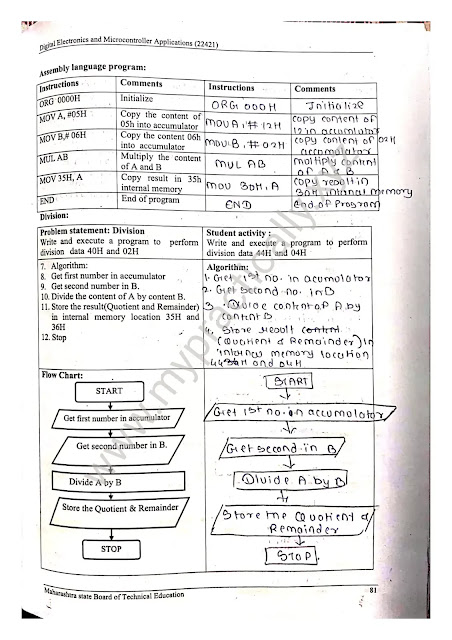 Digital Electronics and Microcontroller Applications (22421)
Assembly language program:
Instructions Comments Instructions Comments
ORG 0000H Initialize ORG 000H Initialize
MOV A, #05H Copy the content of
05h into accumulator MOV A, #12H copy content of
12 in accumulator
MOV B,# 06H Copy the content 06h
into accumulator MOV B, #02H copy content of 02H
accomolator
MUL AB Multiply the content
of A and B MUL AB multiply content
of A & B
MOV 35H, A Copy result in 35h
internal memory MOV 30H, A copy result in
30H internal memory
END End of program END End of Program
Division:
Problem statement: Division
Write and execute a program to perform
division data 40H and 02H
Student activity :
Write and execute a program to perform
division data 44H and 04H
7. Algorithm:
8. Get first number in accumulator
9. Get second number in B.
10. Divide the content of A by content B.
11. Store the result(Quotient and Remainder)
in internal memory location 35H and
36H
12. Stop
Algorithm:
1. Get 1st no. in acumolator
2. Get second no. in B
3. Divide content of A by
content B
4. Store result
(Quotient & Remainder) in
internal memory location
and 04H
Flow Chart:
START
Get first number in accumulator
Get second number in B.
Divide A by B
Store the Quotient & Remainder
STOP
START
Get 1st no. in accumolator
Get second in B
Divide A by B
Store the Quotient &
Remainder
STOP
Maharashtra state Board of Technical Education 81